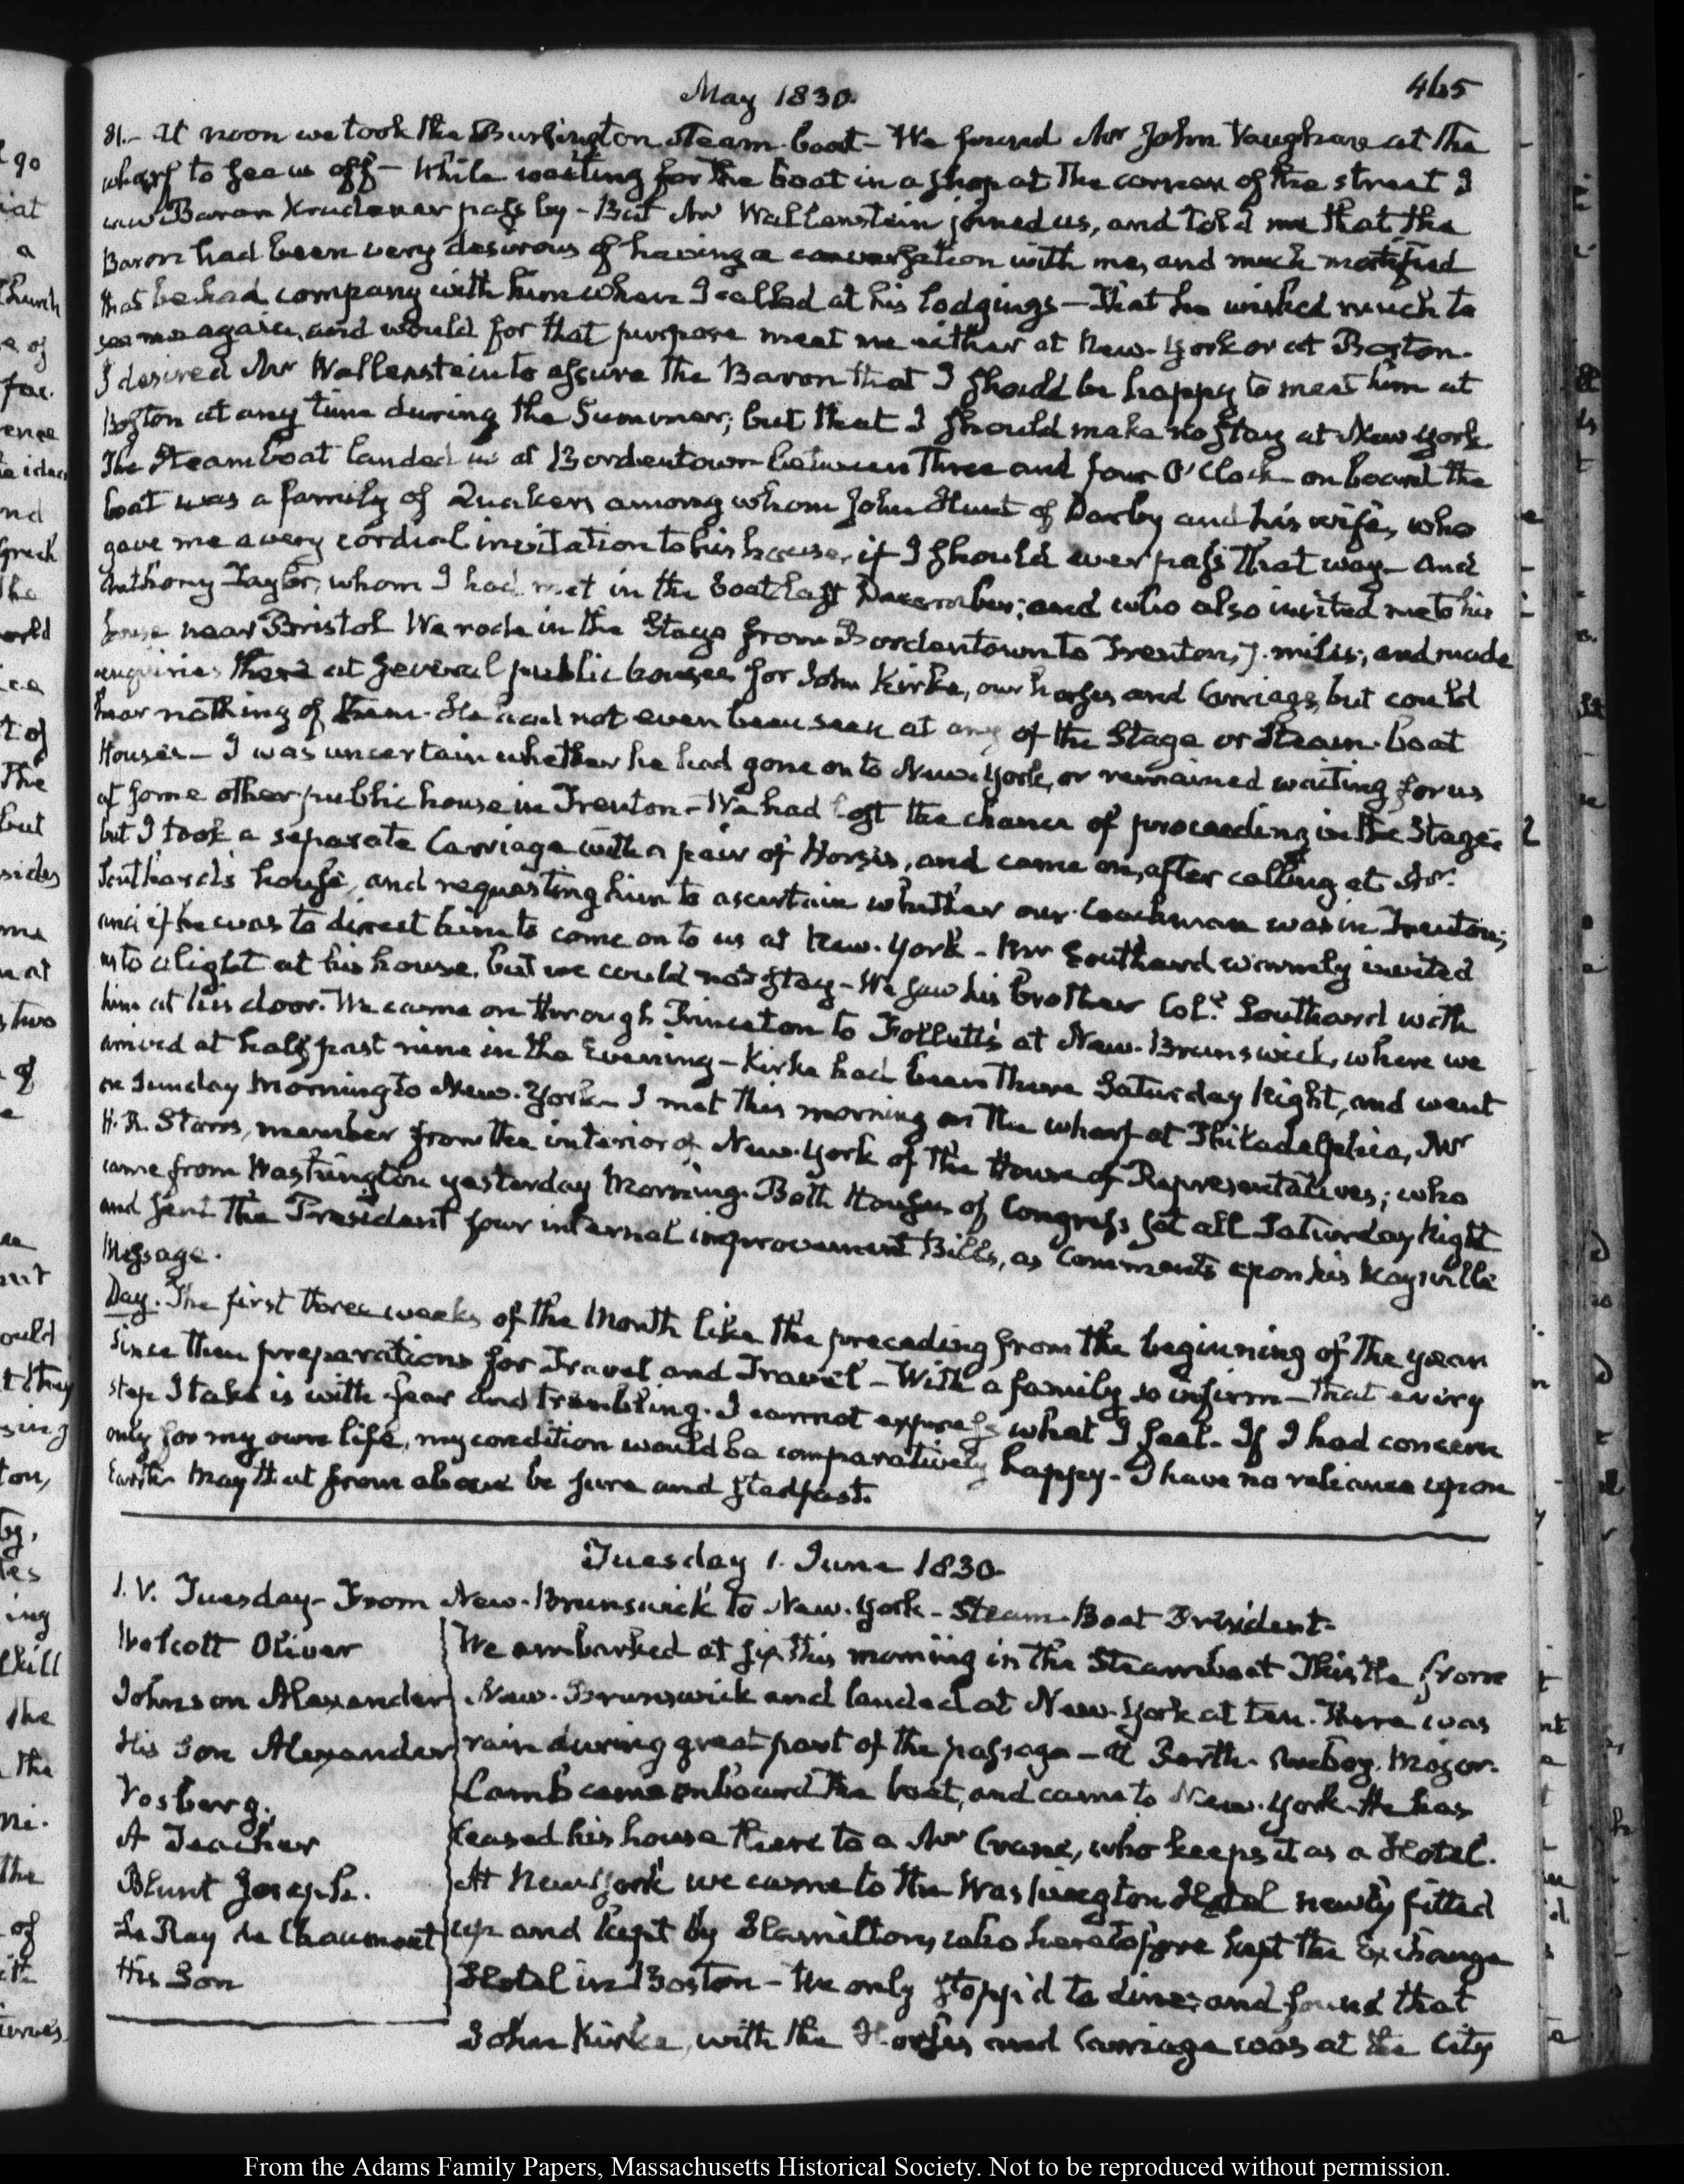 May 1830.
465
31.— At noon we took the Burlington Steam-boat— We found Mr John Vaughan at the
wharf to see us off— While waiting for the boat in a shop at the corner of the street I
saw Baron Krudener pass by— But Mr Wallenstein joined us, and told me that the
Baron had been very desirous of having a conversation with me, and much mortified
that he had company with him when I called at his lodgings— That he wished much to
see me again, and would for that purpose meet me either at New-York or at Boston.
I desired Mr Wallenstein to assure the Baron that I should be happy to meet him at
Boston at any time during the Summer; but that I should make no stay at New York.
The Steam boat landed us at Bordentown between three and four O'Clock— on board the
boat was a family of Quakers among whom John Hunt of Darby and his wife, who
gave me a very cordial invitation to his house, if I should ever pass that way— and
Anthony Taylor, whom I had met in the boat last December; and who also invited me to his
house near Bristol. We rode in the Stage from Bordentown to Trenton, 7. miles; and made
enquiries there at several public houses for John Kirke, our horses and Carriage, but could
hear nothing of him. He had not even been seen at any of the Stage or Steam-boat
Houses— I was uncertain whether he had gone on to New-York, or remained waiting for us
at some other public house in Trenton— We had lost the chance of proceeding in the Stage;
but I took a separate Carriage with a pair of Horses, and came on, after calling at Mr.
Southard's house, and requesting him to ascertain whether our Coachman was in Trenton;
and if he was to direct him to come on to us at New-York— Mr Southard warmly invited
us to alight at his house, but we could not stay— We saw his brother Coll. Southard with
him at his door. We came on through Princeton to Follett's at New-Brunswick, where we
arrived at half past nine in the Evening— Kirke had been there Saturday Night, and went
on Sunday Morning to New-York— I met this morning on the wharf at Philadelphia, Mr
H. R. Storrs, member from the interior of New-York of the House of Representatives; who
came from Washington yesterday Morning. Both Houses of Congress sat all Saturday Night
and sent the President four internal improvement Bills, as Comments upon his Maysville
Message.
Day. The first three weeks of the Month like the preceding from the beginning of the year
Since then preparations for Travel and Travel— With a family so infirm— that every
step I take is with fear and trembling. I cannot express what I feel. If I had concern
only for my own life, my condition would be comparatively happy— I have no reliance upon
Earth— May that from above be sure and stedfast.
Tuesday 1. June 1830.
1. V. Tuesday— From New-Brunswick to New-York— Steam-Boat President—
Wolcott Oliver
Johnson Alexander
His Son Alexander
Vosberg.
A Teacher
Blunt Joseph.
Le Ray de Chaumont
His Son
We embarked at six this morning in the Steamboat Thistle from
New-Brunswick and landed at New-York at ten. There was
rain during great part of the passage— At Perth-Amboy Major
Lomb came on board the boat, and came to New-York. He has
leased his house there to a Mr Crane, who keeps it as a Hotel.
At New York we came to the Washington Hotel newly fitted
up and kept by Hamilton, who heretofore kept the Exchange
Hotel in Boston— We only stopp'd to dine; and found that
John Kirke, with the Horses and Carriage was at the City
From the Adams Family Papers, Massachusetts Historical Society. Not to be reproduced without permission.